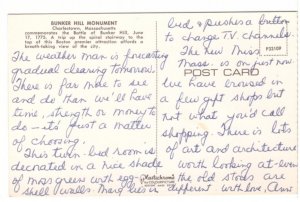 BUNKER HILL MONUMENT
Charlestown, Massachusetts
commemorates the Battle of Bunker Hill, June
17, 1775. A trip up the spiral stairway to the
top of this Boston premier attraction affords a
breath-taking view of the city.
The weather man is forecasting
gradual clearing tomorrow.
There is far more to see
and do than we'll have
time, strength or money to
do — it's just a matter
of choosing.
This twin-bed room is
decorated in a nice shade
of moss greens with egg-
shell walls. Marg lies in
bed & pushes a button
to change TV channels.
The new Miss
Mass. is on just now
POST CARD
We have browsed in
a few gift shops but
not what you'd call
shopping. There is lots
of art and architecture
worth looking at - even
the old stores are
different with love, Ann
Plastichrome